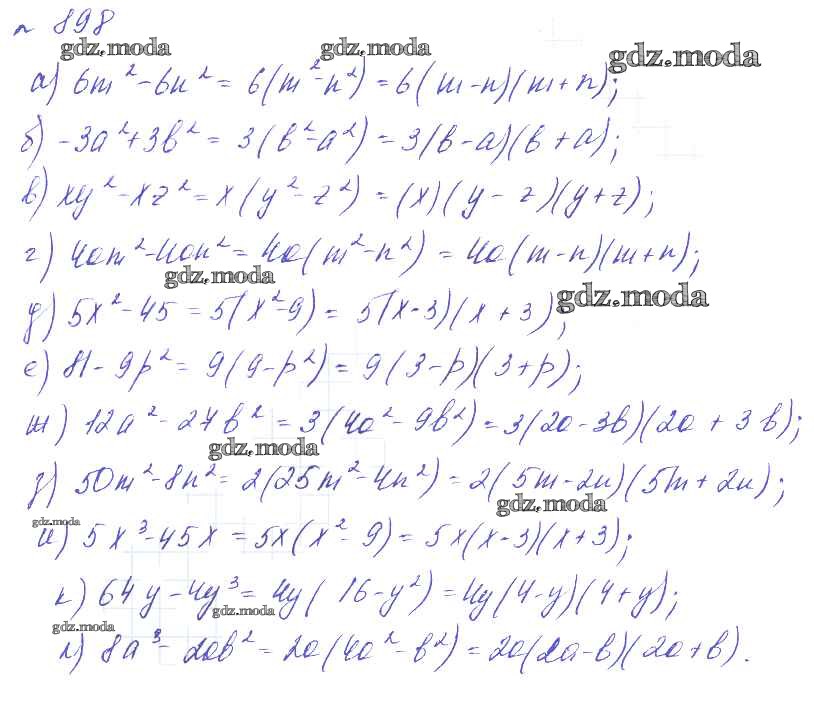 № 898
gdz.moda gdz.moda gdz.moda
а) 6m² - 6n² = 6(m² - n²) = 6(m - n)(m + n);
б) -3a² + 3b² = 3(b² - a²) = 3(b - a)(b + a);
в) xy² - xz² = x(y² - z²) = (x)(y - z)(y + z);
г) 4am² - 4an² = 4a(m² - n²) = 4a(m - n)(m + n);
gdz.moda gdz.moda
д) 5x² - 45 = 5(x² - 9) = 5(x - 3)(x + 3);
е) 81 - 9p² = 9(9 - p²) = 9(3 - p)(3 + p);
ж) 12a² - 27b² = 3(4a² - 9b²) = 3(2a - 3b)(2a + 3b);
gdz.moda
з) 50m² - 8n² = 2(25m² - 4n²) = 2(5m - 2n)(5m + 2n);
gdz.moda gdz.moda
и) 5x³ - 45x = 5x(x² - 9) = 5x(x - 3)(x + 3);
к) 64y - 4y³ = 4y(16 - y²) = 4y(4 - y)(4 + y);
gdz.moda gdz.moda
л) 8a³ - 2ab² = 2a(4a² - b²) = 2a(2a - b)(2a + b).